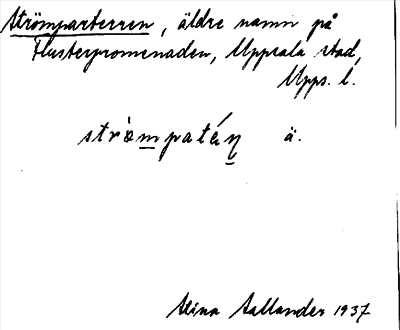 Strömparterren, äldre namn på
Flusterpromenaden, Uppsala stad,
Upps. l.
strömpatéŋ ä.
Stina Sallander 1937